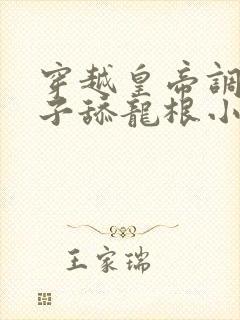 穿越皇帝調
子舔龍根小
王家瑞